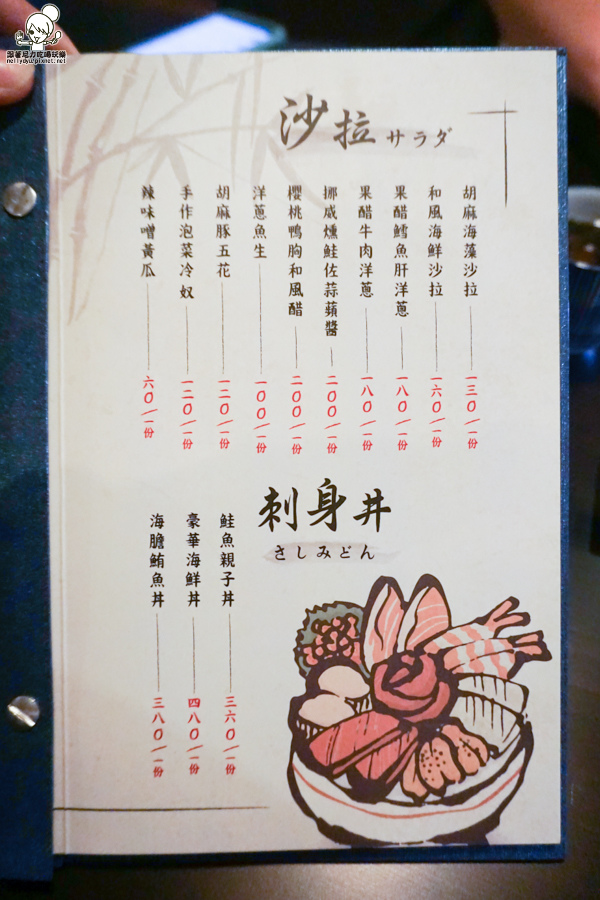 跟著尼力吃喝玩樂
nellydyu.pixnet.net
沙拉 サラダ
胡麻海藻沙拉 一三0/一份
和風海鮮沙拉 一六0/一份
果醋鱈魚肝洋蔥 一八0/一份
果醋牛肉洋蔥 一八0/一份
挪威燻鮭佐蒜蘋醬 二00/一份
櫻桃鴨胸和風醋 二00/一份
洋蔥魚生 一00/一份
胡麻豚五花 一二0/一份
手作泡菜冷奴 一二0/一份
辣味噌黃瓜 六0/一份
刺身丼
さしみどん
鮭魚親子丼 三六0/一份
豪華海鮮丼 四八0/一份
海膽鮪魚丼 三八0/一份